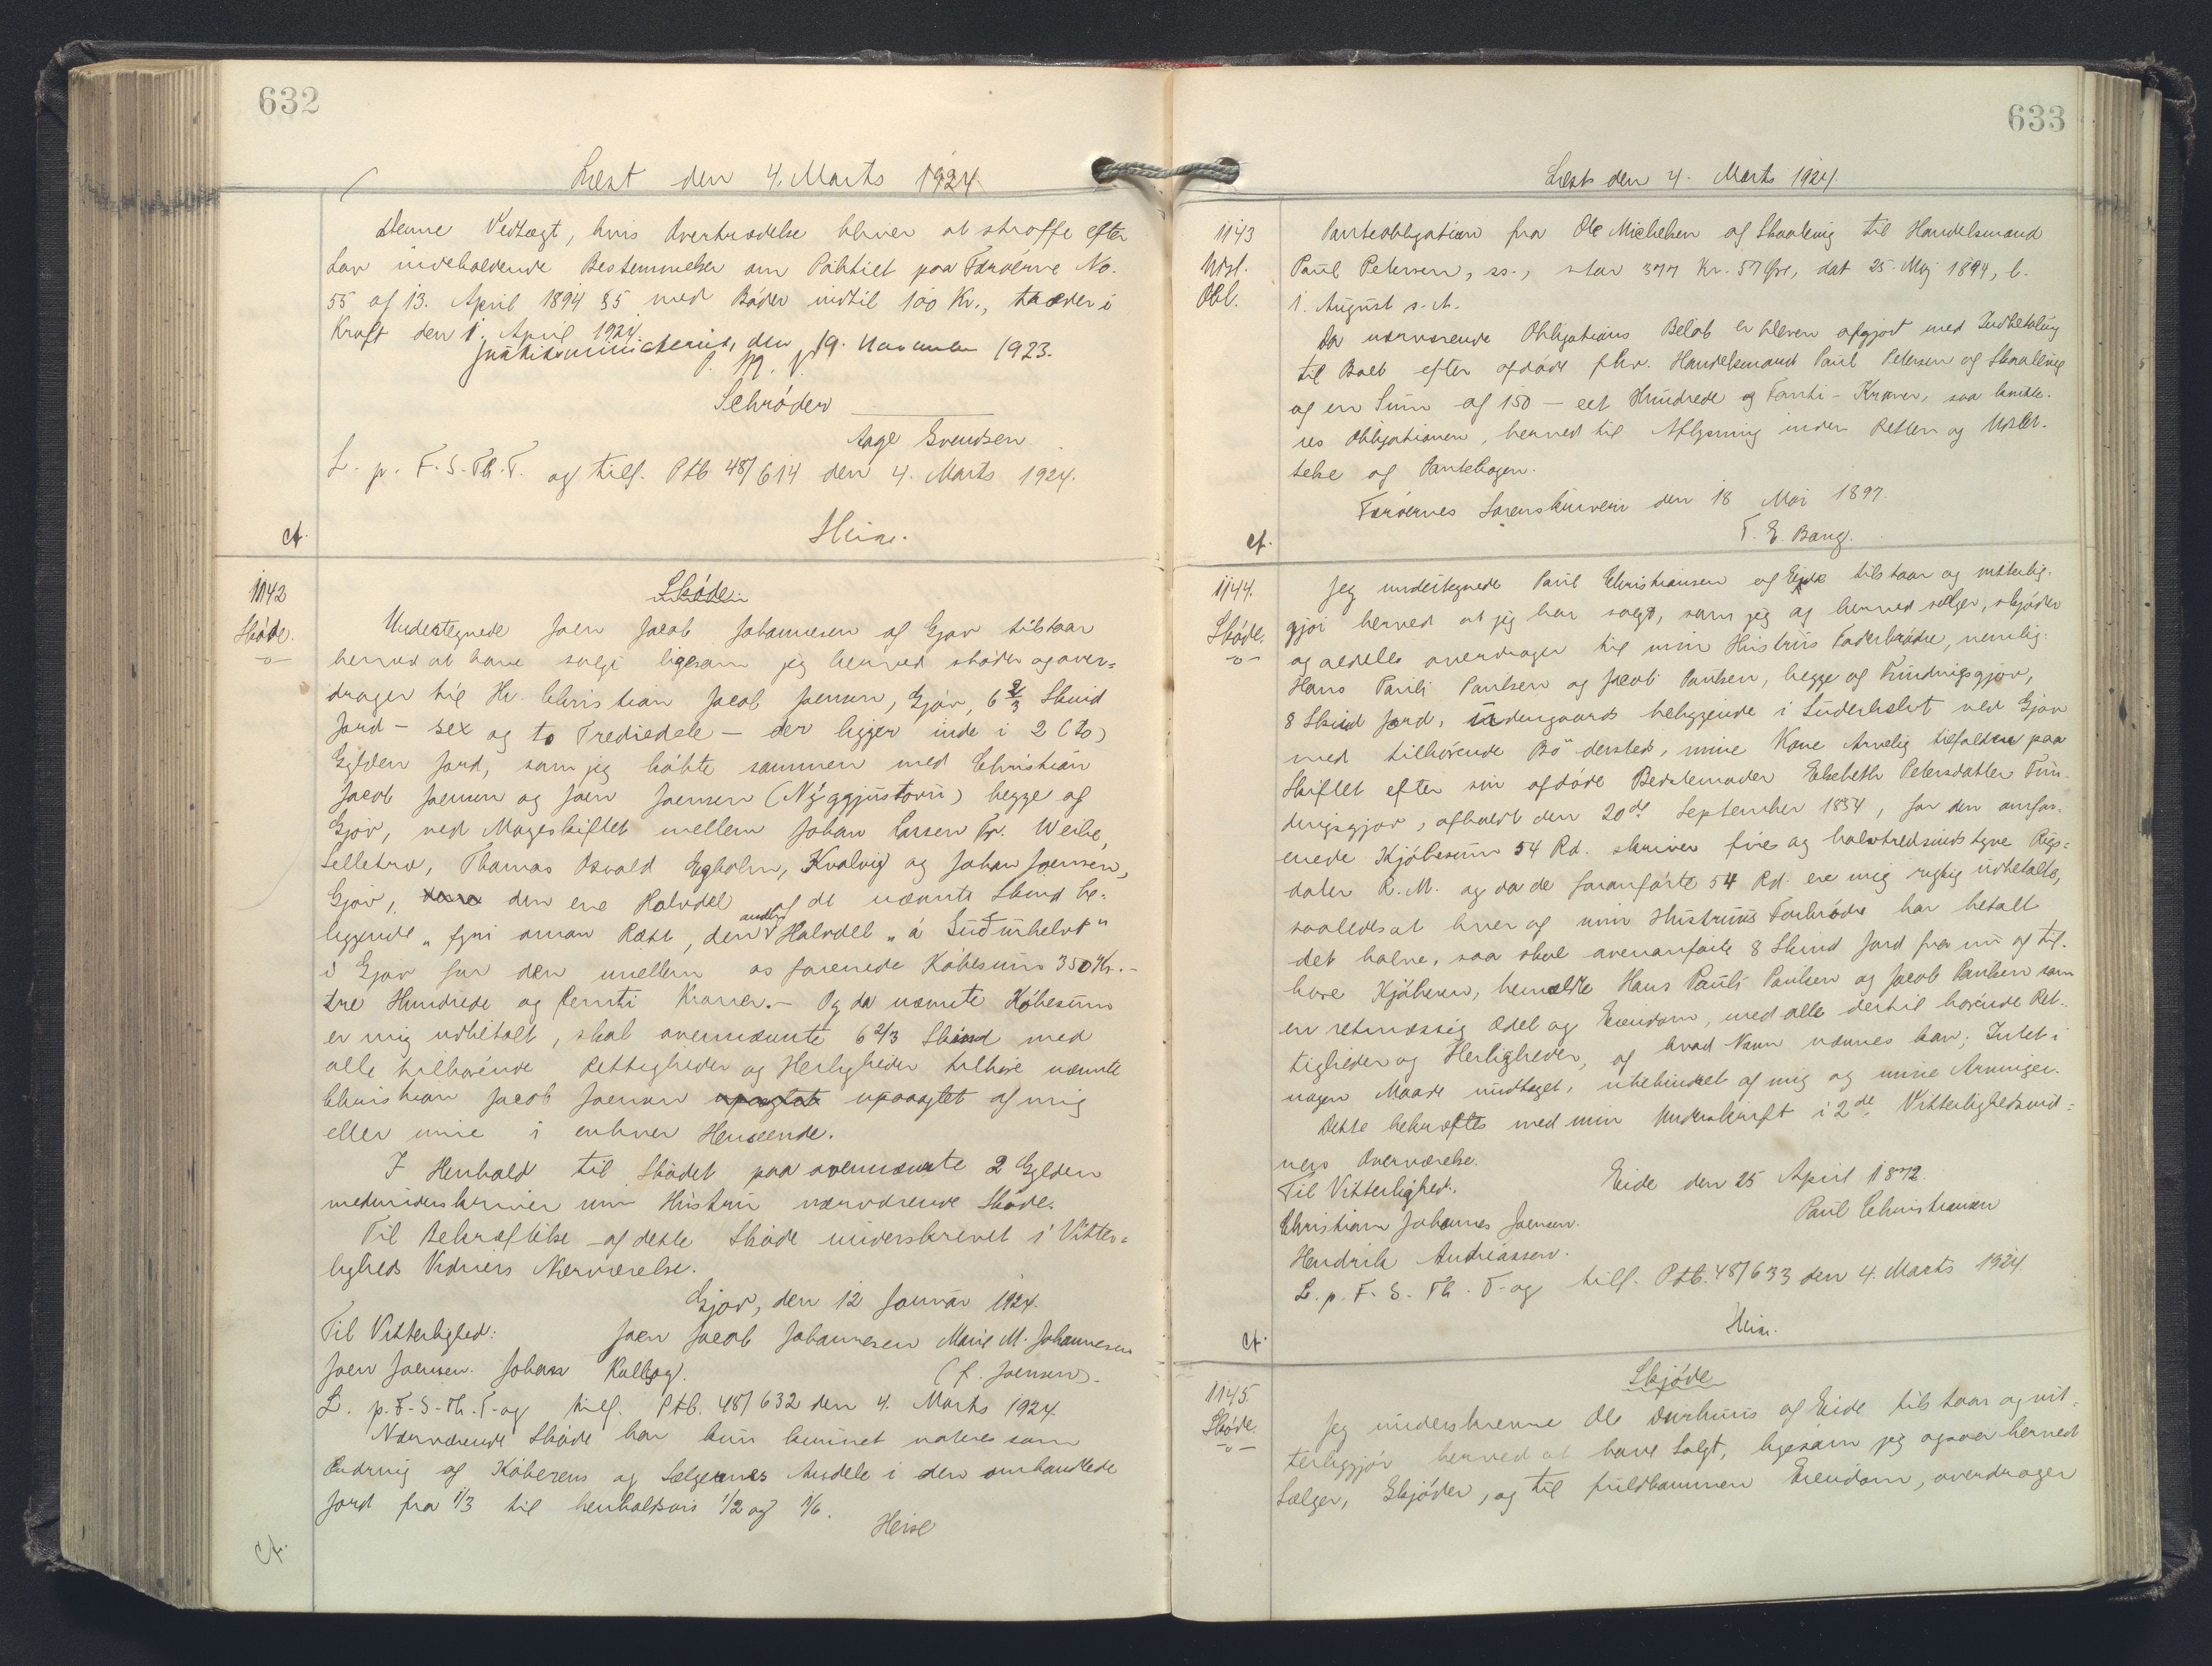 632
Læst den 4. Marts 1924
Denne Vedtægt, hvis Overtrædelse bliver at straffe efter
Lov indeholdende Bestemmelser om Politiet paa Færøerne No.
55 af 13. April 1894 §5 med Bøder indtil 100 Kr., træder i
Kraft den 1. April 1924.
Justitsministeriet, den 19. November 1923.
P. M. V.
Schrøder
Aage Svendsen
L. p. F. S. Th. T. og tilf. Ptb 48/614 den 4. Marts 1924.
Heise.
Cf.
1142
Skøde.
Skøde
Undertegnede Joen Jacob Johannesen af Gjov tilstaar
herved at have solgt ligesom jeg herved skøder og over=
drager til Hr. Christian Jacob Joensen, Gjov, 6 2/3 Skind
Jord – sex og to Trediedele – der ligger inde i 2 (to)
Gylden Jord, som jeg købte sammen med Christian
Jacob Joensen og Joen Joensen (Nýggjustovu) begge af
Gjov, ved Mageskiftet mellem Johan Larsen Pr. Weihe,
Selletræ, Thomas Osvald Egholm, Kvalvig og Johan Joensen,
Gjov, den ene Halvdel af de nævnte Skind be-
liggende „fyri oman Ræst, den anden Halvdel „á Suðurhelvt"
i Gjov for den mellem os forenede Købesum 350 Kr. –
tre Hundrede og femti Kroner. – Og da nævnte Købesum
er mig udbetalt, skal ovennævnte 6 2/3 Skind med
alle tilhørende Rettigheder og Herligheder tilhøre nævnte
Christian Jacob Joensen upaagtet upaaagtet af mig
eller mine i enhver Henseende.
I Henhold til Skødet paa ovennævnte 2 Gylden
medunderskriver min Hustru nærværende Skøde.
Til Bekræftelse af dette Skøde underskrevet i Vitter=
ligheds Vidners Nærværelse.
Gjov, den 12 Januar 1924.
Til Vitterlighed: Joen Jacob Johannesen Marie M. Johannesen
Joen Joensen. Johan (f. Joensen).
L. p. F. S. Th. T. og tilf. Ptb. 48/632 den 4. Marts 1924
Nærværende Skøde har kun kunnet noteres som
Ændring af Køberens og Sælgernes Andele i den omhandlede
Jord fra 1/3 til henholdsvis 1/2 og 1/6.
Heise
Cf.
633
Læst den 4. Marts 1924.
1143
Udsl.
Obl.
Panteobligation fra Ole Michelsen af Skaalevig til Handelsmand
Paul Petersen, ss., stor 377 Kr. 57 Øre, dat 25. Maj 1894, l.
1. August s. A.
Da nærværende Obligations Beløb er bleven afgjort med Indbetaling
til Boet efter afdøde fhv. Handelsmand Paul Petersen af Skaalevig
af en Sum af 150 – eet Hundrede og Femti – Kroner, saa kvitte-
res Obligationen, herved til Aflysning inden Retten og Udslet-
telse af Pantebogen.
Færøernes Sorenskriveri den 18 Mai 1897.
T. E. Bang.
Cf.
1144.
Skøde.
Jeg undertegnede Paul Christiansen af Eide tilstaar og vitterlig-
gjør herved at jeg har solgt, som jeg og herved sælger, skjøder
og aldeles overdrager til min Hustrus Faderbrødre, nemlig:
Hans Pauli Paulsen og Jacob Paulsen, begge af Fundingsgjov,
8 Skind Jord, indengaards beliggende i Suderhelvt ved Gjov
med tilhørende Bø dersteds, mine Kone Arvelig tilfalden paa
Skiftet efter sin afdøde Bedstemoder Elsebeth Petersdatter Fun-
dingsgjov, afholdt den 20de September 1854, for den omfor-
enede Kjøbesum 54 Rd. skriver fire og halvtredsindstyve Rigs=
daler R. M. og da de foranførte 54 Rd. ere mig rigtig udbetalte,
saaledes at hver af min Hustrus Farbrødre har betalt
det halve, saa skal ovenanførte 8 Skind Jord fra nu af til-
høre Kjøberen, bemældte Hans Pauli Paulsen og Jacob Paulsen som
en retmæssig Odel og Eiendom, med alle dertil hørende Ret-
tigheder og Herligheder, af hvad Navn nævnes kan; Intet i
nogen Maade undtaget, ubehindret af mig og mine Arvinger.
Dette bekræftes med min Underskrift i 2de Vitterlighedsvid=
ners Overværelse.
Til Vitterlighed. Eide den 25 April 1872.
Christian Johannes Joensen. Paul Christiansen
Hendrik Andreassen.
L. p. F. S. Th. T. og tilf. Ptb. 48/633 den 4. Marts 1924
Heise.
Cf.
1145.
Skøde.
Skjøde
Jeg underskrevne Ole Durhuus af Eide tilstaar og vit-
terliggjør herved at have Solgt, ligesom jeg ogsaa herved
Sælger, Skjøder, og til fuldkommen Eiendom, overdrager